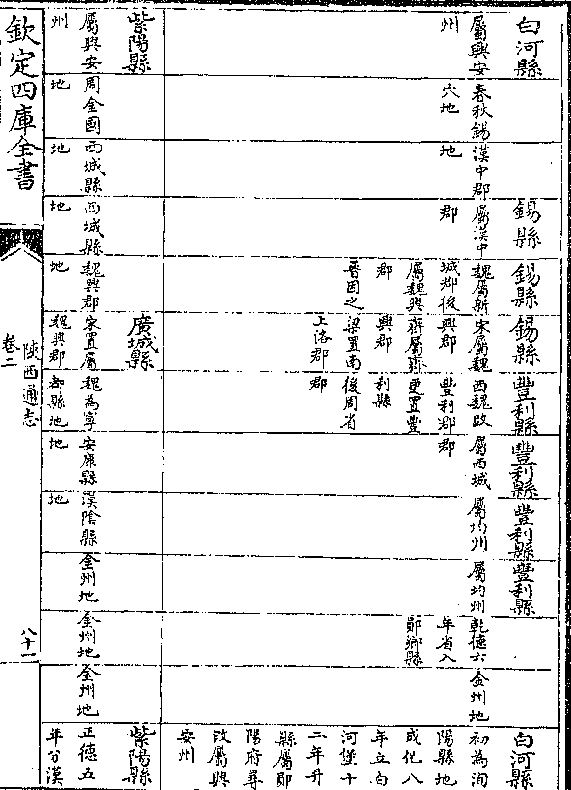 白河縣
屬興安
州
春秋錫
穴地
漢中郡
地
錫縣
屬漢中
郡
錫縣
魏屬新
城郡後
屬魏興
郡
晉因之
錫縣
宋屬魏
興郡
齊屬齊
興郡
梁置南
上洛郡
豐利縣
西魏改
豐利郡
更置豐
利縣
後周省
郡
豐利縣
屬西城
郡
豐利縣
屬均州
豐利縣
屬均州
乾德六
年省入
鄖鄉縣
金州地
白河縣
初為洵
陽縣地
成化八
年立白
河堡十
二年升
縣屬鄖
陽府尋
改屬興
安州
紫陽縣
屬興安
州
周金國
地
西城縣
地
西城縣
地
魏興郡
地
廣城縣
宋置屬
魏興郡
魏為寧
都縣地
安康縣
地
漢陰縣
地
金州地
金州地
金州地
紫陽縣
正德五
年分漢
欽定四庫全書
陝西通志
卷二
八十一